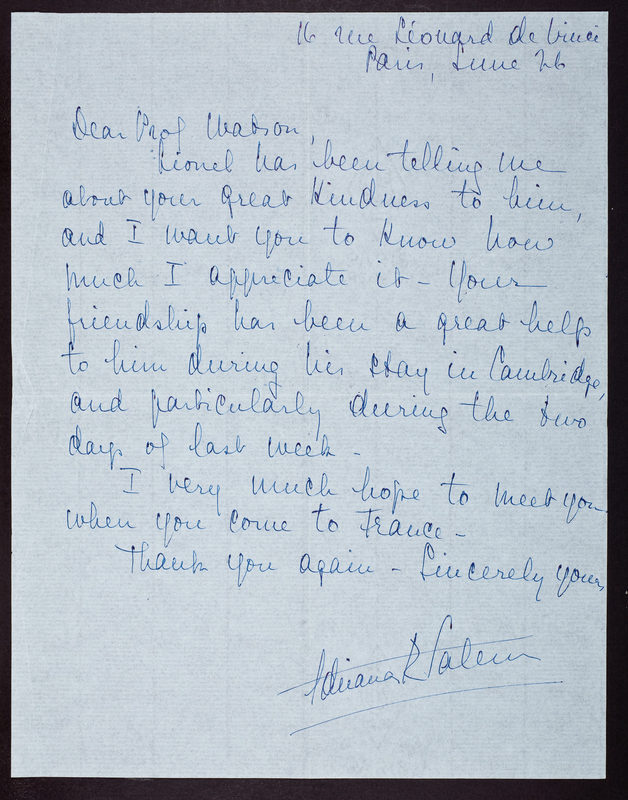 16 rue Léonard de Vinci
Paris, June 26
Dear Prof Watson,
Lionel has been telling me
about your great kindness to him,
and I want you to know how
much I appreciate it - Your
friendship has been a great help
to him during his stay in Cambridge,
and particularly during the two
days of last week -
I very much hope to meet you
when you come to France -
Thank you again - Sincerely yours
Adriana R Salem